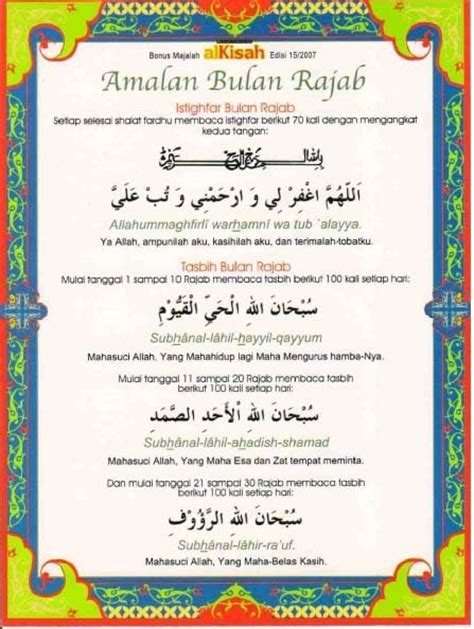 Bonus Majalah alKisah Edisi 15/2007
Amalan Bulan Rajab
Istighfar Bulan Rajab
Setiap selesai shalat fardhu membaca istighfar berikut 70 kali dengan mengangkat
kedua tangan:
اَللَّهُمَّ اغْفِرْ لِي وَ ارْحَمْنِي وَ تُبْ عَلَيَّ
Allahummaghfirlî warhamnî wa tub `alayya.
Ya Allah, ampunilah aku, kasihilah aku, dan terimalah tobatku.
Tasbih Bulan Rajab
Mulai tanggal 1 sampai 10 Rajab membaca tasbih berikut 100 kali setiap hari:
سُبْحَانَ اللهِ الْحَيِّ الْقَيُّوْمِ
Subhânal-lâhil-hayyil-qayyum
Mahasuci Allah, Yang Mahahidup lagi Maha Mengurus hamba-Nya.
Mulai tanggal 11 sampai 20 Rajab membaca tasbih
berikut 100 kali setiap hari:
سُبْحَانَ اللهِ الْأَحَدِ الصَّمَدِ
Subhânal-lâhil-ahadish-shamad
Mahasuci Allah, Yang Maha Esa dan Zat tempat meminta.
Dan mulai tanggal 21 sampai 30 Rajab membaca tasbih
berikut 100 kali setiap hari:
سُبْحَانَ اللهِ الرَّؤُوْفِ
Subhânal-lâhir-ra'uf.
Mahasuci Allah, Yang Maha-Belas Kasih.